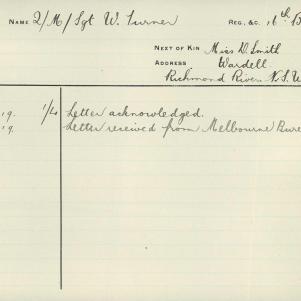 NAME 2/M/Sgt W. Turner REG., &C. 16th B
NEXT OF KIN Miss D. Smith
ADDRESS Wardell
Richmond River N.S.W
19. 1/4 Letter acknowledged.
19. Letter received from Melbourne Bure